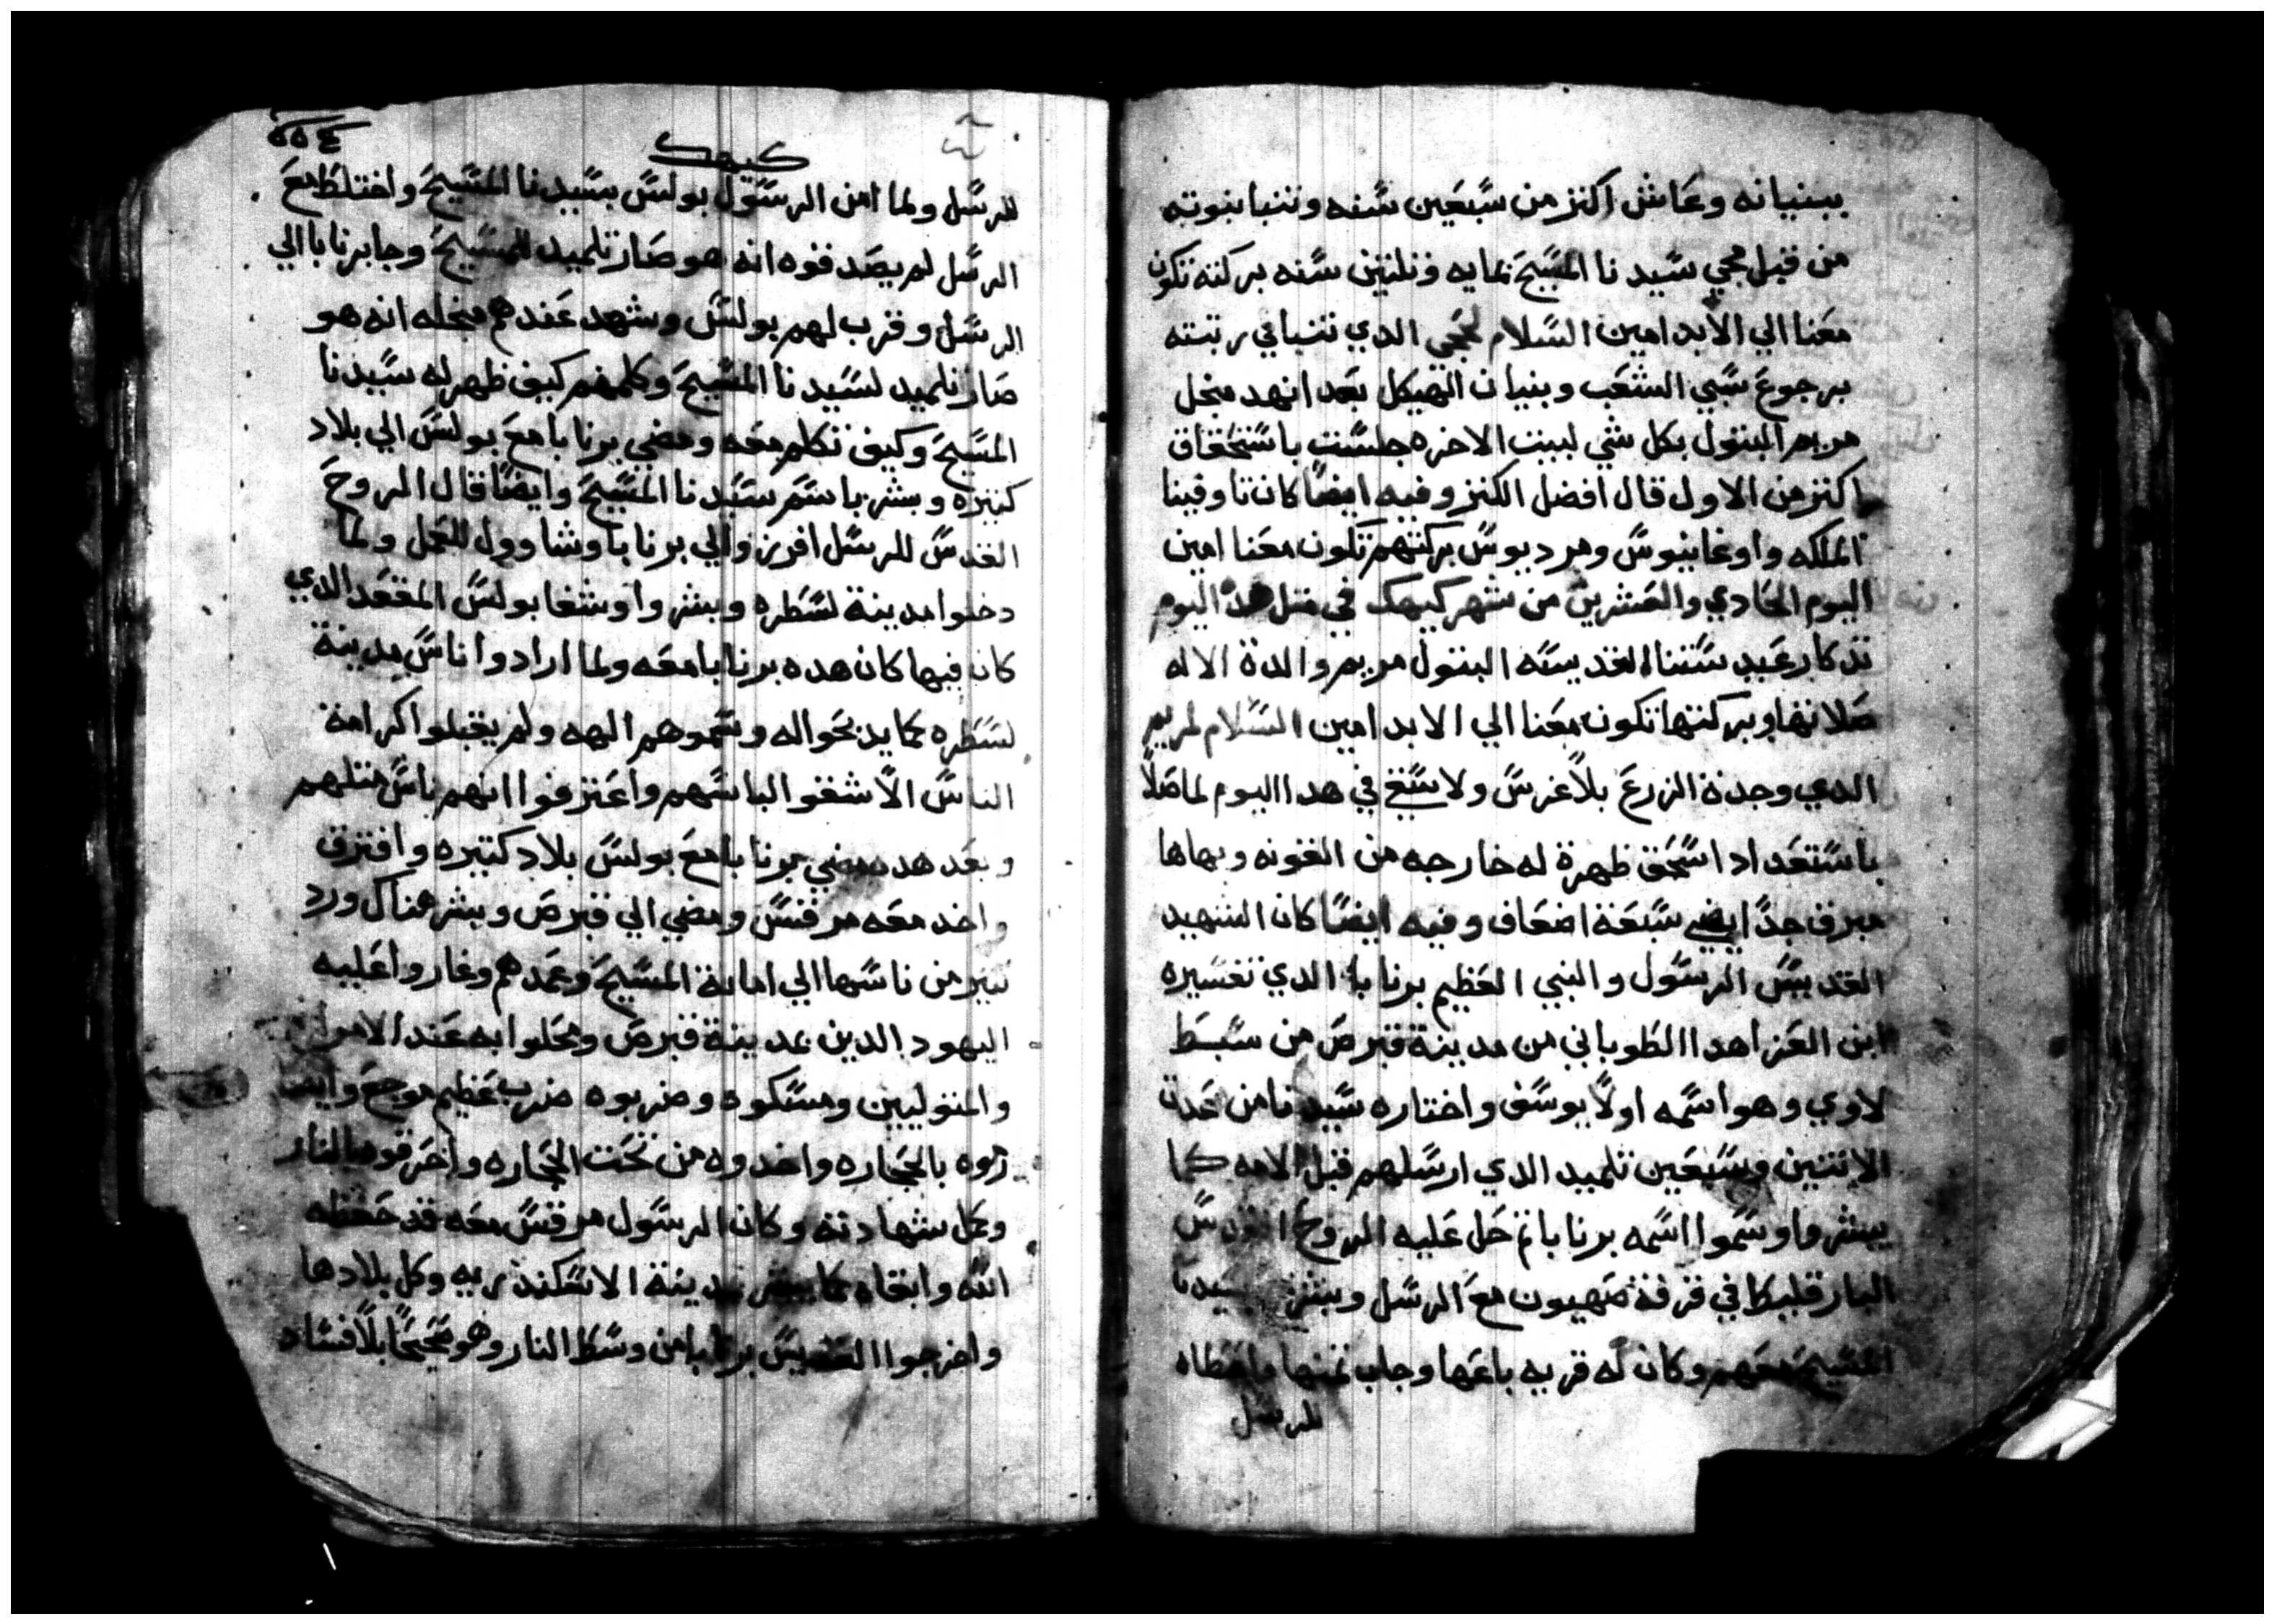 ببنيانه وعاش اكتر من سبعين سنه وتنبا بنبوته
من قبل مجي سيدنا المسيح بمايه وتلتين سنه بركته تكون
معنا الي الابد امين السلام لحجي الدي تنبا في رتبته
برجوع سبي الشعب وبنيان الهيكل بعد انهد منجل
مريم البتول بكل شي لبيت الاخره جلست باستحقاق
اكتر من الاول قال افضل الكنز وفيه ايضا كان تاوفينا
الملكه واوغاينوس ومرديوس بركتهم تكون معنا امين
اليوم الحادي والعشرين من شهر كيهك في متل هدا اليوم
تدكار عيد ستنا القديسه البتول مريم والدة الاله
صلاتها وبركتها تكون معنا الي الابد امين السلام لمريم
الدي وجدة الزرع بلا غرس ولا سقي في هدا اليوم لما صلا
باستعداد اسحق ظهرة له خارجه من القونه وبهاها
مبرق جدا ايضي سبعة اضعاف وفيه ايضا كان الشهيد
القديس الرسول والنبي العظيم برنابا الدي تفسيره
ابن العزا هدا الطوباني من مدينة قبرص من سبط
لاوي وهو اسمه اولا يوسف واختاره سيدنا من عدة
الاتنين وسبعين تلميد الدي ارسلهم قبل الامه كما
يبشروا وسموا اسمه برنابا تم حل عليه الروح القدس
البارقليط في غرفة صهيون مع الرسل وبشر بسيدنا
المسيح معهم وكان له قريه باعها وجاب تمنها واعطاه
للرسل
كيهك
للرسل ولما امن الرسول بولس بسيدنا المسيح واختلط مع
الرسل لم يصدقوه انه هو صار تلميد للمسيح وجا برنابا الي
الرسل وقرب لهم بولس وشهد عندهم منجله انه هو
صار تلميد لسيدنا المسيح وكلمهم كيف ظهر له سيدنا
المسيح وكيف تكلم معه ومضي برنابا مع بولس الي بلاد
كتيره وبشر باسم سيدنا المسيح وايضا قال الروح
القدس للرسل افرزوا لي برنابا وشاوول للعمل ولما
دخلوا مدينة لسطره وبشروا وشفا بولس المقعد الدي
كان فيها كان هده برنابا معه ولما ارادوا ناس مدينة
لسطره بما يدبحوا له وسموهم الهه ولم يقبلوا كرامة
الناس الا شقوا لباسهم واعترفوا انهم ناس متلهم
وبعد هده مضي برنابا مع بولس بلاد كتيره وافترق
واخد معه مرقس ومضي الي قبرص وبشر هناك ورد
كتير من ناسها الي امانة المسيح وعمدهم وغاروا عليه
اليهود الدين بمدينة قبرص ومحلوا به عند الامرا
والمتوليين ومسكوه وضربوه ضرب عظيم موجع وايضا
رموه بالحجاره واخدوه من تحت الحجاره واحرقوه بالنار
وكمل شهادته وكان الرسول مرقس معه قد حفظه
الله وابقاه بما يبشر بمدينة الاسكندريه وكل بلادها
واخرجوا القديس برنابا من وسط النار وهو صحيحا بلا فساد